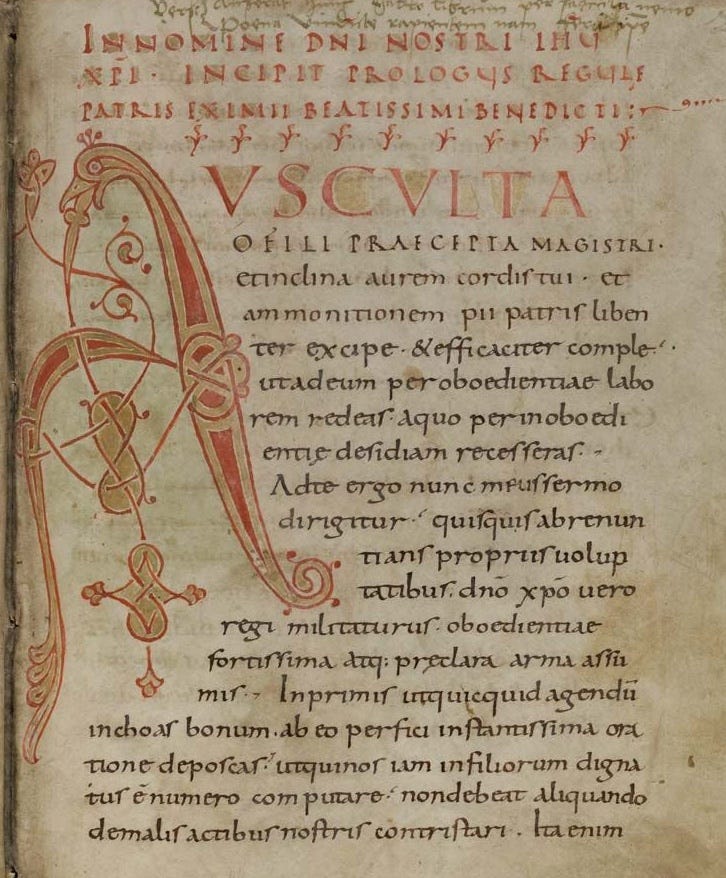 INNOMINE DNI NOSTRI IHU
XP̄I · INCIPIT PROLOGUS REGULĘ
PATRIS EXIMII BEATISSIMI BENEDICTI:
AUSCULTA
O FILI PRAECEPTA MAGISTRI ·
et inclina aurem cordis tui · et
ammonitionem pii patris liben
ter excipe · & efficaciter comple
ut ad eum per oboedientiae labo
rem redeas · a quo per inoboedi
entię desidiam recesseras ·
Ad te ergo nunc meus sermo
dirigitur · quisquis abrenun
tians propriis volup
tatibus · dnō xp̄o vero
regi militaturus · oboedientiae
fortissima atq: pręclara arma assū
mis · In primis ut quicquid agendū
inchoas bonum · ab eo perfici instantissima ora
tione deposcas · ut qui nos iam in filiorum digna
tus ē numero computare · non debeat aliquando
de malis actibus nostris contristari · Ita enim